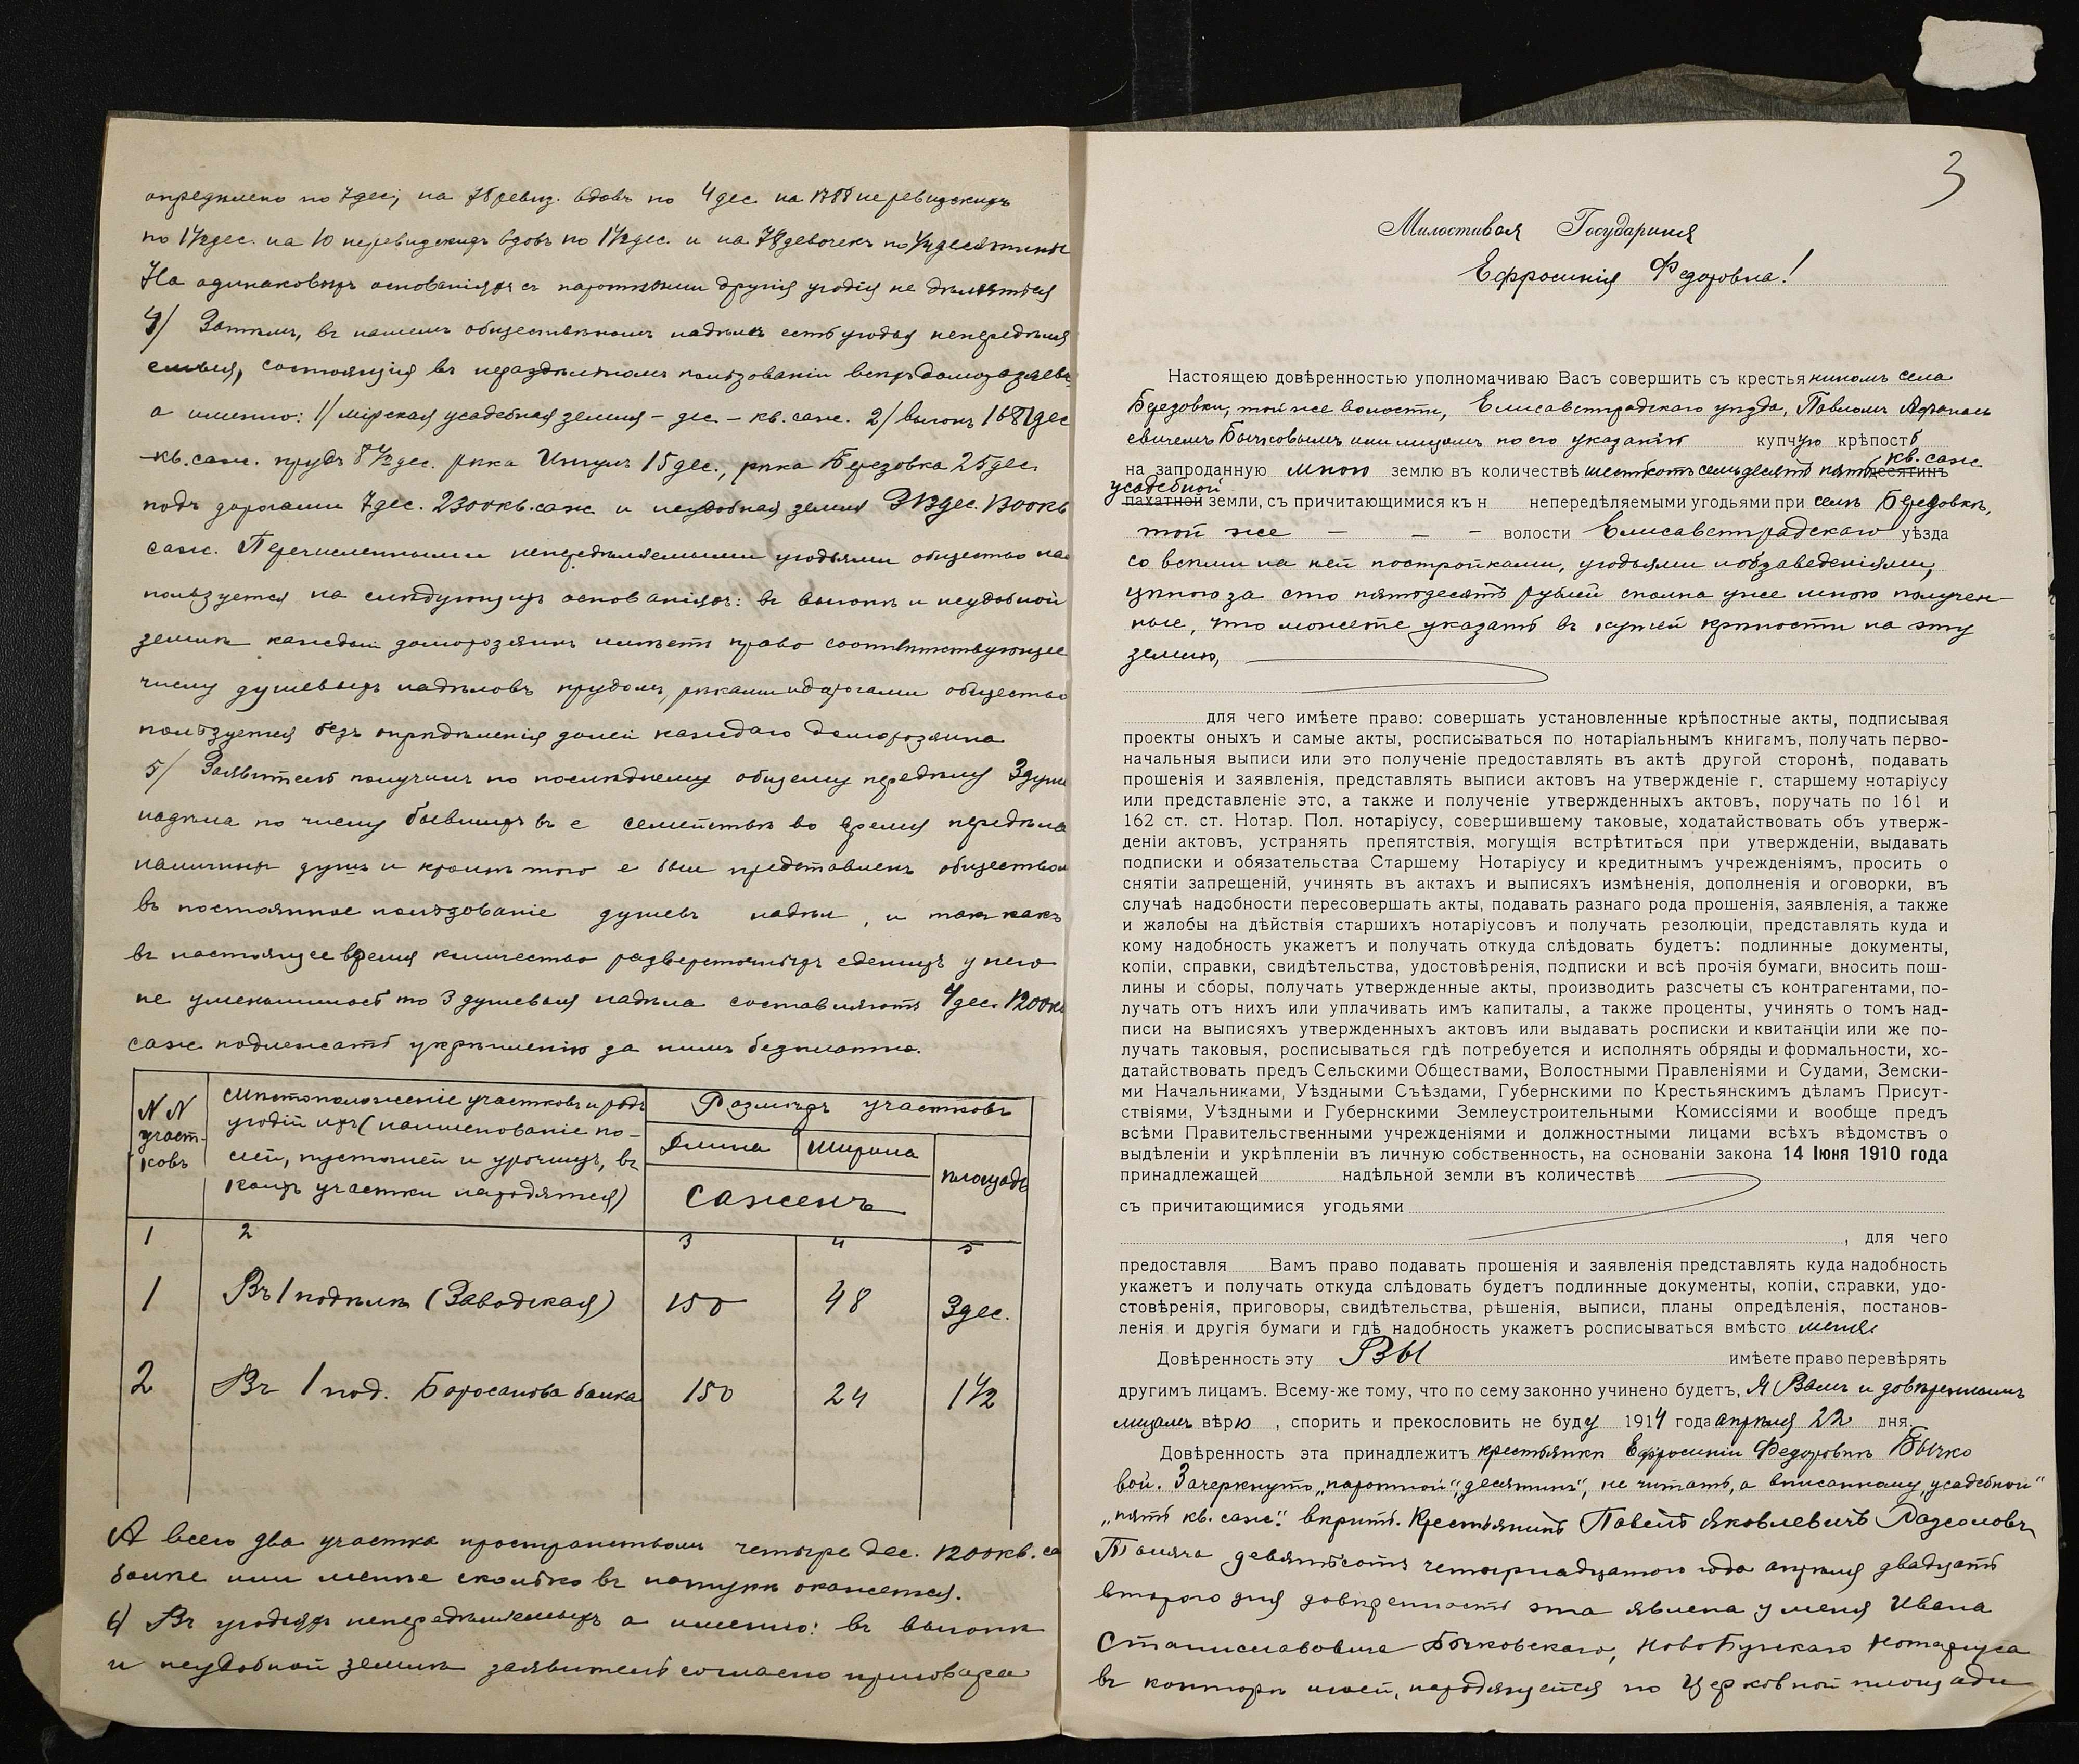 опредѣлено по 7 дес, на 75 ревиз. вдовъ по 4 дес на 1788 неревизскихъ
по 1½ дес. на 10 неревизскихъ вдовъ по 1½ дес. и на 78 девочекъ по ½ десятины
На одинаковыхъ основаніяхъ съ пахотными другія угодія не дѣлятся
4/ Затѣмъ, въ нашемъ общественномъ надѣлѣ есть угодья непередѣля
емыя, состоящія въ нераздѣльномъ пользованіи всѣхъ домохозяевъ
а именно: 1/ мірская усадебная земля – дес – кв. саж. 2/ выгонъ 1681 дес
– кв. саж. прудъ 8½ дес. рѣка Ингулъ 15 дес., рѣка Березовка 25 дес.
подъ дорогами 7 дес. 2300 кв. саж и неудобная земля 313 дес. 1300 кв
саж. Перечисленными непередѣляемыми угодьями общество на
пользуется на слѣдующихъ основаніяхъ: въ выгонѣ и неудобной
землѣ каждый домохозяинъ имѣетъ право соотвѣтствующее
числу душевыхъ надѣловъ прудомъ, рѣками и дорогами общество
пользуется безъ опредѣленія долей каждаго домохозяина
5/ Заявитель получилъ по послѣднему общему передѣлу 3 душ
надѣла по числу бывшихъ въ е семействѣ во время передѣла
наличныхъ душъ и кромѣ того е был представленъ обществом
въ постоянное пользованіе душев надѣл, и такъ какъ
въ настоящее время количество разверсточныхъ единицъ у него
не уменьшилось то 3 душевыя надѣла составляютъ 4 дес. 1200 кв
саж подлежатъ укрѣпленію за нимъ безплатно.
N N участ-ковъ
Мѣстоположеніе участковъ и родъ
угодій ихъ (наименованіе по-
лей, пустошей и урочищъ, въ
коихъ участки находятся)
Размѣръ участковъ
Длина Ширина площадь
Саженъ
1 2 3 4 5
1 Въ 1 подѣлѣ (Заводская) 150 48 3 дес.
2 Въ 1 под. балка 150 24 1½
А всего два участка пространствомъ четыре дес. 1200 кв. са
болѣе или менѣе сколько въ натурѣ окажется.
6) Въ угодьяхъ непередѣляемыхъ а именно: въ выгонѣ
и неудобной землѣ заявитель согласно приговора
3
Милостивая Государыня
Ефросинія Федоровна!
Настоящею довѣренностью уполномачиваю Васъ совершить съ крестьяниномъ села
Березовки, той же волости, Елисаветградскаго уѣзда, Павломъ Афанась
евичемъ Бычковымъ или лицомъ по его указанію купчую крѣпость
кв. саж
на запроданную мною землю въ количествѣ шестьсотъ семьдесятъ пять десятинъ
усадебной
пахатной земли, съ причитающимися къ н непередѣляемыми угодьями при селѣ Березовкѣ,
той же – – – волости Елисаветградскаго уѣзда
со всѣми на ней постройками, угодьями и обзаведеніями,
цѣною за сто пятьдесятъ рублей сполна уже мною получен-
ные, что можете указать въ купчей крѣпости на эту
землю,
для чего имѣете право: совершать установленные крѣпостные акты, подписывая
проекты оныхъ и самые акты, росписываться по нотаріальнымъ книгамъ, получать перво-
начальныя выписи или это полученіе предоставлять въ актѣ другой сторонѣ, подавать
прошенія и заявленія, представлять выписи актовъ на утвержденіе г. старшему нотаріусу
или представленіе это, а также и полученіе утвержденныхъ актовъ, поручать по 161 и
162 ст. ст. Нотар. Пол. нотаріусу, совершившему таковые, ходатайствовать объ утверж-
деніи актовъ, устранять препятствія, могущія встрѣтиться при утвержденіи, выдавать
подписки и обязательства Старшему Нотаріусу и кредитнымъ учрежденіямъ, просить о
снятіи запрещеній, учинять въ актахъ и выписяхъ измѣненія, дополненія и оговорки, въ
случаѣ надобности пересовершать акты, подавать разнаго рода прошенія, заявленія, а также
и жалобы на дѣйствія старшихъ нотаріусовъ и получать резолюціи, представлять куда и
кому надобность укажетъ и получать откуда слѣдовать будетъ: подлинные документы,
копіи, справки, свидѣтельства, удостовѣренія, подписки и всѣ прочія бумаги, вносить пош-
лины и сборы, получать утвержденные акты, производить разсчеты съ контрагентами, по-
лучать отъ нихъ или уплачивать имъ капиталы, а также проценты, учинять о томъ над-
писи на выписяхъ утвержденныхъ актовъ или выдавать росписки и квитанціи или же по-
лучать таковыя, росписываться гдѣ потребуется и исполнять обряды и формальности, хо-
датайствовать предъ Сельскими Обществами, Волостными Правленіями и Судами, Земски-
ми Начальниками, Уѣздными Съѣздами, Губернскими по Крестьянскимъ дѣламъ Присут-
ствіями, Уѣздными и Губернскими Землеустроительными Комиссіями и вообще предъ
всѣми Правительственными учрежденіями и должностными лицами всѣхъ вѣдомствъ о
выдѣленіи и укрѣпленіи въ личную собственность, на основаніи закона 14 Іюня 1910 года
принадлежащей надѣльной земли въ количествѣ
съ причитающимися угодьями
, для чего
предоставля Вамъ право подавать прошенія и заявленія представлять куда надобность
укажетъ и получать откуда слѣдовать будетъ подлинные документы, копіи, справки, удо-
стовѣренія, приговоры, свидѣтельства, рѣшенія, выписи, планы опредѣленія, постанов-
ленія и другія бумаги и гдѣ надобность укажетъ росписываться вмѣсто меня
Довѣренность эту Вы имѣете право перевѣрять
другимъ лицамъ. Всему-же тому, что по сему законно учинено будетъ, я Вамъ и довѣреннымъ
лицамъ вѣрю , спорить и прекословить не буду 1914 года апрѣля 22 дня.
Довѣренность эта принадлежитъ крестьянкѣ Ефросиніи Федоровнѣ Бычко
вой. Зачеркнуто „пахотной", „десятинъ", не читать, а вписанному „усадебной"
„пять кв. саж." вѣрить. Крестьянинъ Павелъ Яковлевичъ Разсоловъ
Тысяча девятьсотъ четырнадцатого года апрѣля двадцать
второго дня довѣренность эта явлена у меня Ивана
Станиславовича Бычковскаго, НовоБугскаго Нотаріуса
въ конторѣ моей, находящейся по Церковной площади